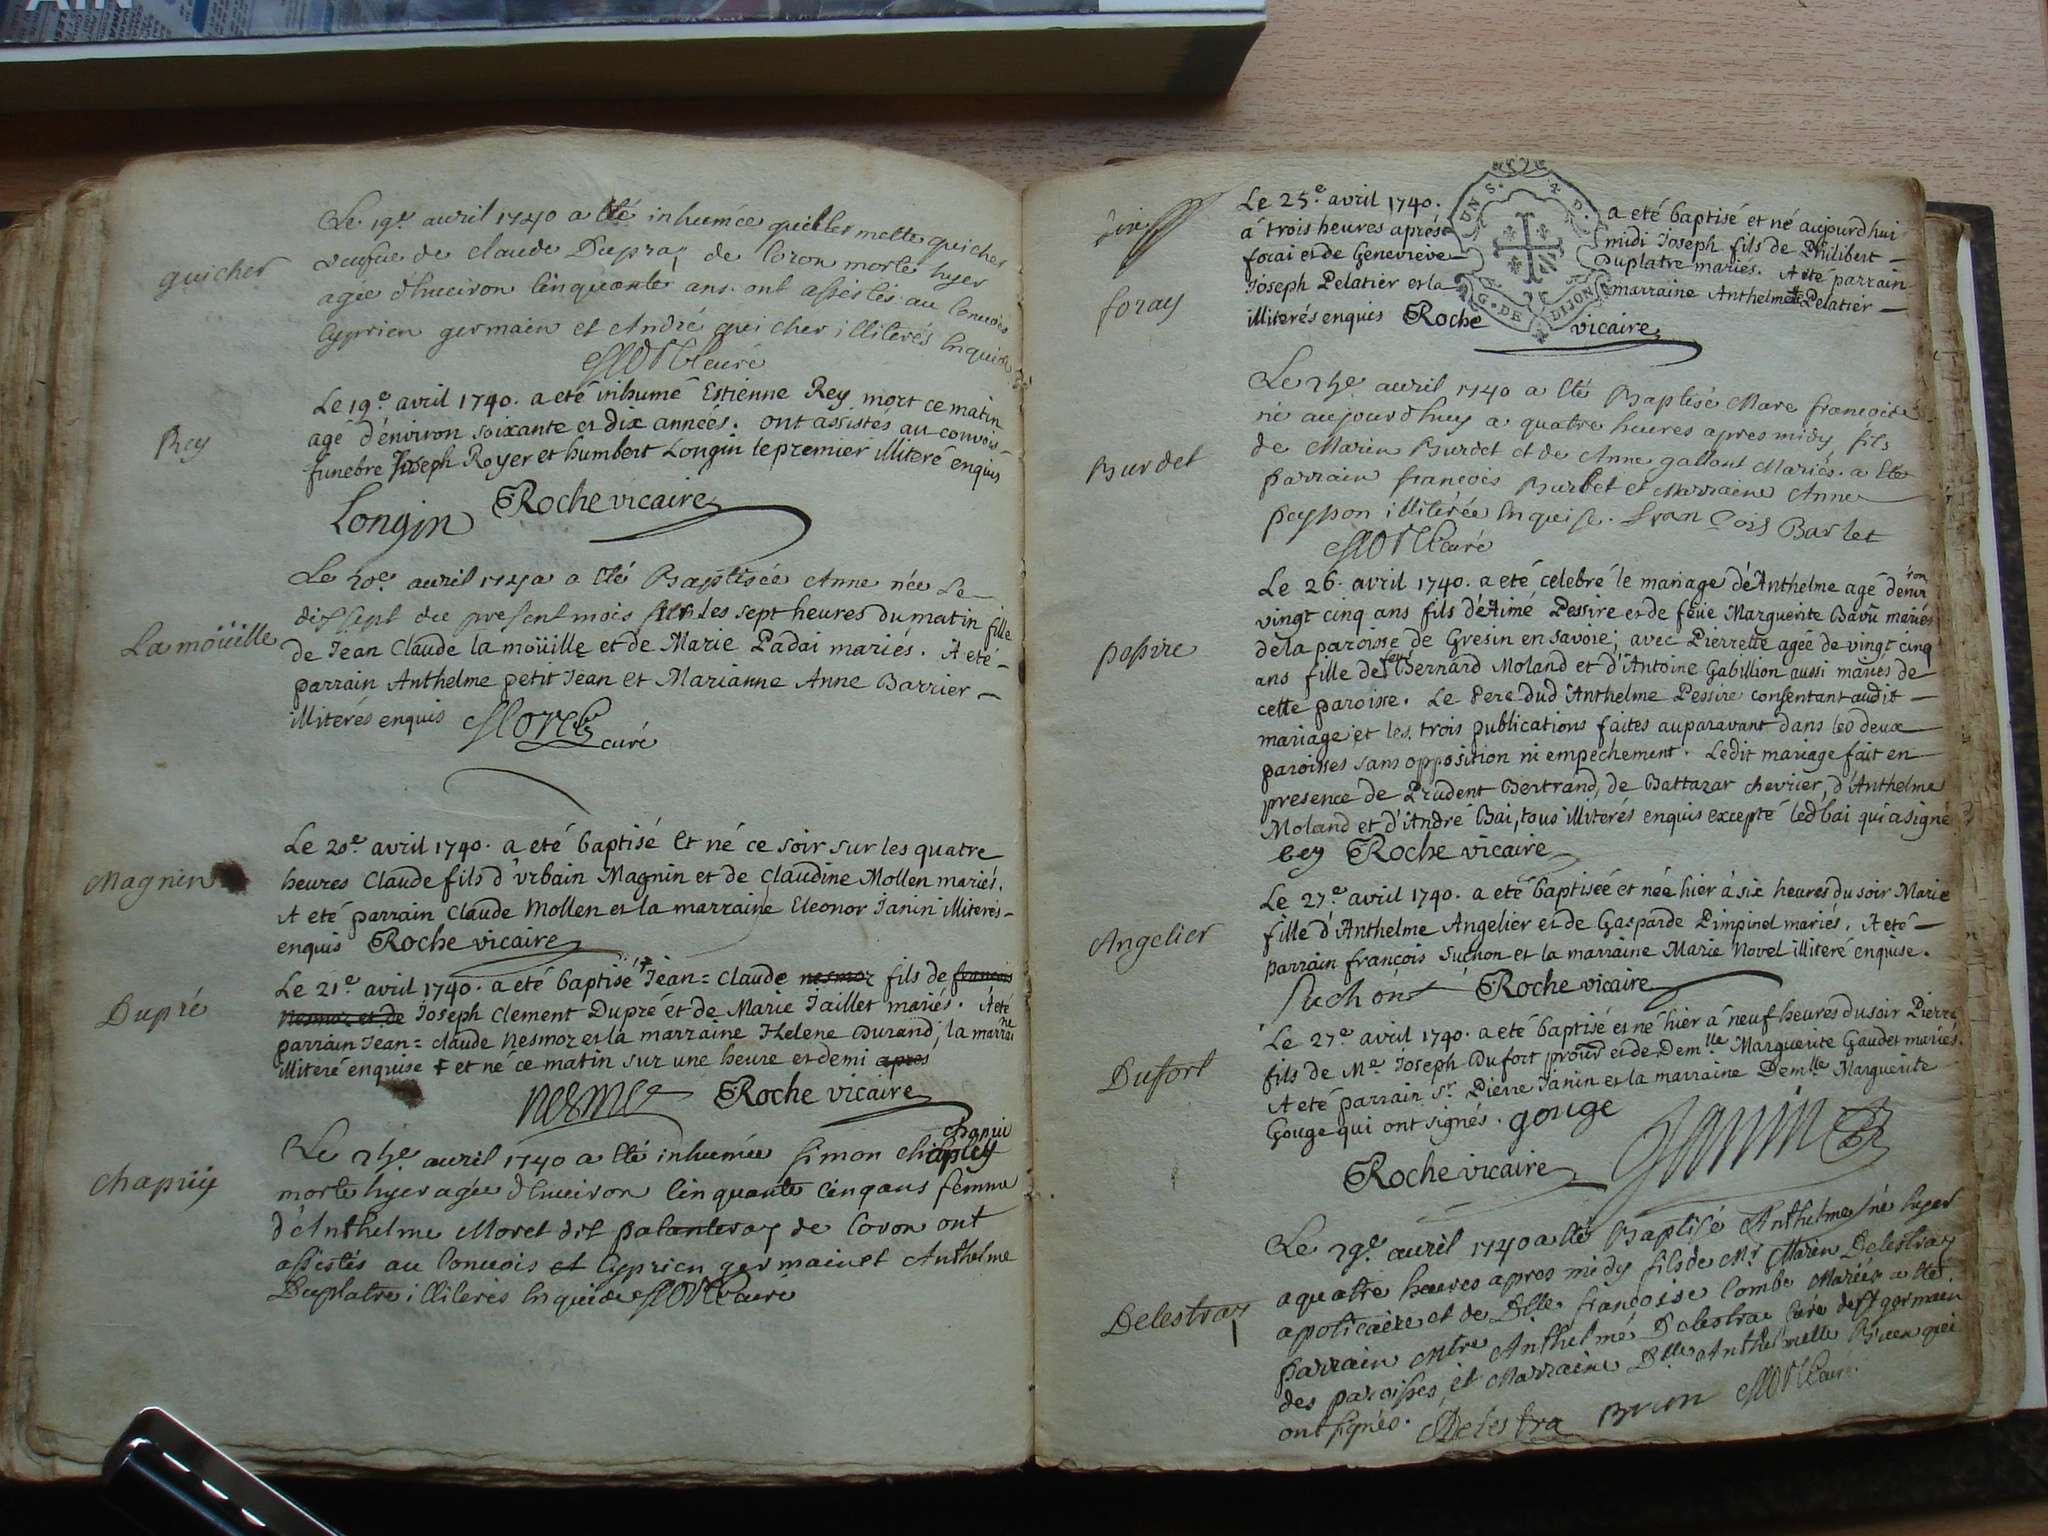 AIN
guicher
Le 19e avril 1740 a été inhumée guillermette guicher
veufve de claude Dupraz de Coron morte hyer
agée d'huviron cinquante ans. ont assistés au convois
Cyprien germain et André guicher illiterés enquis
curé
Rey
Le 19e avril 1740. a eté inhumé Estienne Rey mort ce matin
agé d'environ soixante et dix années. ont assistés au convois
funebre Joseph Royer et humbert Longin le premier illiteré enquis
Longin Roche vicaire
La moüille
Le 20e avril 1740 a été Baptisée Anne née Le
dissept du present mois sur les sept heures du matin fille
de Jean Claude la moüille et de Marie Padai mariés. A eté
parrain Anthelme petit Jean et Marianne Anne Barrier
illiterés enquis curé
Magnin
Le 20e avril 1740. a eté baptisé et né ce soir sur les quatre
heures Claude fils d'urbain Magnin et de Claudine Mollen mariés.
A eté parrain Claude Mollen et la marraine Eleonor Janin illiterés
enquis Roche vicaire
Dupré
Le 21e avril 1740. a eté baptisé + Jean=Claude nesmoz fils de francois
Nesmoz et de Joseph Clement Dupré et de Marie Jaillet mariés. A eté
parrain Jean=claude Nesmoz et la marraine Helene Durand, la marraine
illiteré enquise + et né ce matin sur une heure et demi apres
nesmoz Roche vicaire
Chapuy
chapui
Le 25e avril 1740 a été inhumée simon
morte hyer agée d'huviron cinquante cinq ans femme
d'Anthelme Moret dit palanteraz de Coron ont
assistés au convois et Cyprien germain et Anthelme
Duplatre illiterés enquis curé
foray
Le 25e avril 1740. a eté baptisé et né aujourd'hui
à trois heures après midi Joseph fils de Philibert
forai et de Genevieve Duplatre mariés. A eté parrain
Joseph Pelatier et la marraine Anthelmette Pelatier
illiterés enquis Roche vicaire
G. DE DIJON
Burdet
Le 25e avril 1740 a été Baptisé Marc françois
né aujourdhuy a quatre heures apres midy fils
de Marin Burdet et de Anne galland Mariés. a été
parrain françois Burdet et Marraine Anne
peysson illiterée enquise. françois Barlet
curé
pessire
Le 26. avril 1740. a eté celebré le mariage d'Anthelme agé d'environ
vingt cinq ans fils d'Aimé Pessire et de feüe Marguerite Bavü mariés
de la paroisse de Gresin en Savoie; avec Pierrette agée de vingt cinq
ans fille de feu Bernard Moland et d'Antoine Gabillion aussi mariés de
cette paroisse. Le Pere dud Anthelme Pessire consentant audit
mariage et les trois publications faites auparavant dans les deux
paroisses sans opposition ni empechement. Ledit mariage fait en
presence de Prudent Bertrand, de Baltazar chevrier, d'Anthelme
Moland et d'André Bai, tous illiterés enquis excepté led bai qui a signé
bey Roche vicaire
Angelier
Le 27e avril 1740. a eté baptisée et née hier à six heures du soir Marie
fille d'Anthelme Angelier et de Gasparde Pimpinel mariés. A eté
parrain françois Suchon et la marraine Marie Novel illiteré enquise.
Suchon Roche vicaire
Dufort
Le 27e avril 1740. a eté baptisé et né hier à neuf heures du soir Pierre
fils de Me Joseph Dufort et de Demlle Marguerite Gaudet mariés.
A eté parrain Sr Pierre Janin et la marraine Demlle Marguerite
Gouge qui ont signés. gouge Janin
Roche vicaire
Delestraz
Le 29e avril 1740 a été Baptisé Anthelme né hyer
a quatre heures apres midy fils de Mr Marin Delestraz
apoticaire et de Dlle françoise Combe Mariés a été
parrain Mtre Anthelme Delestra Curé de St germain
des paroisses et Marraine Dlle Anthelmette Brun qui
ont signés. Delestra Brun curé